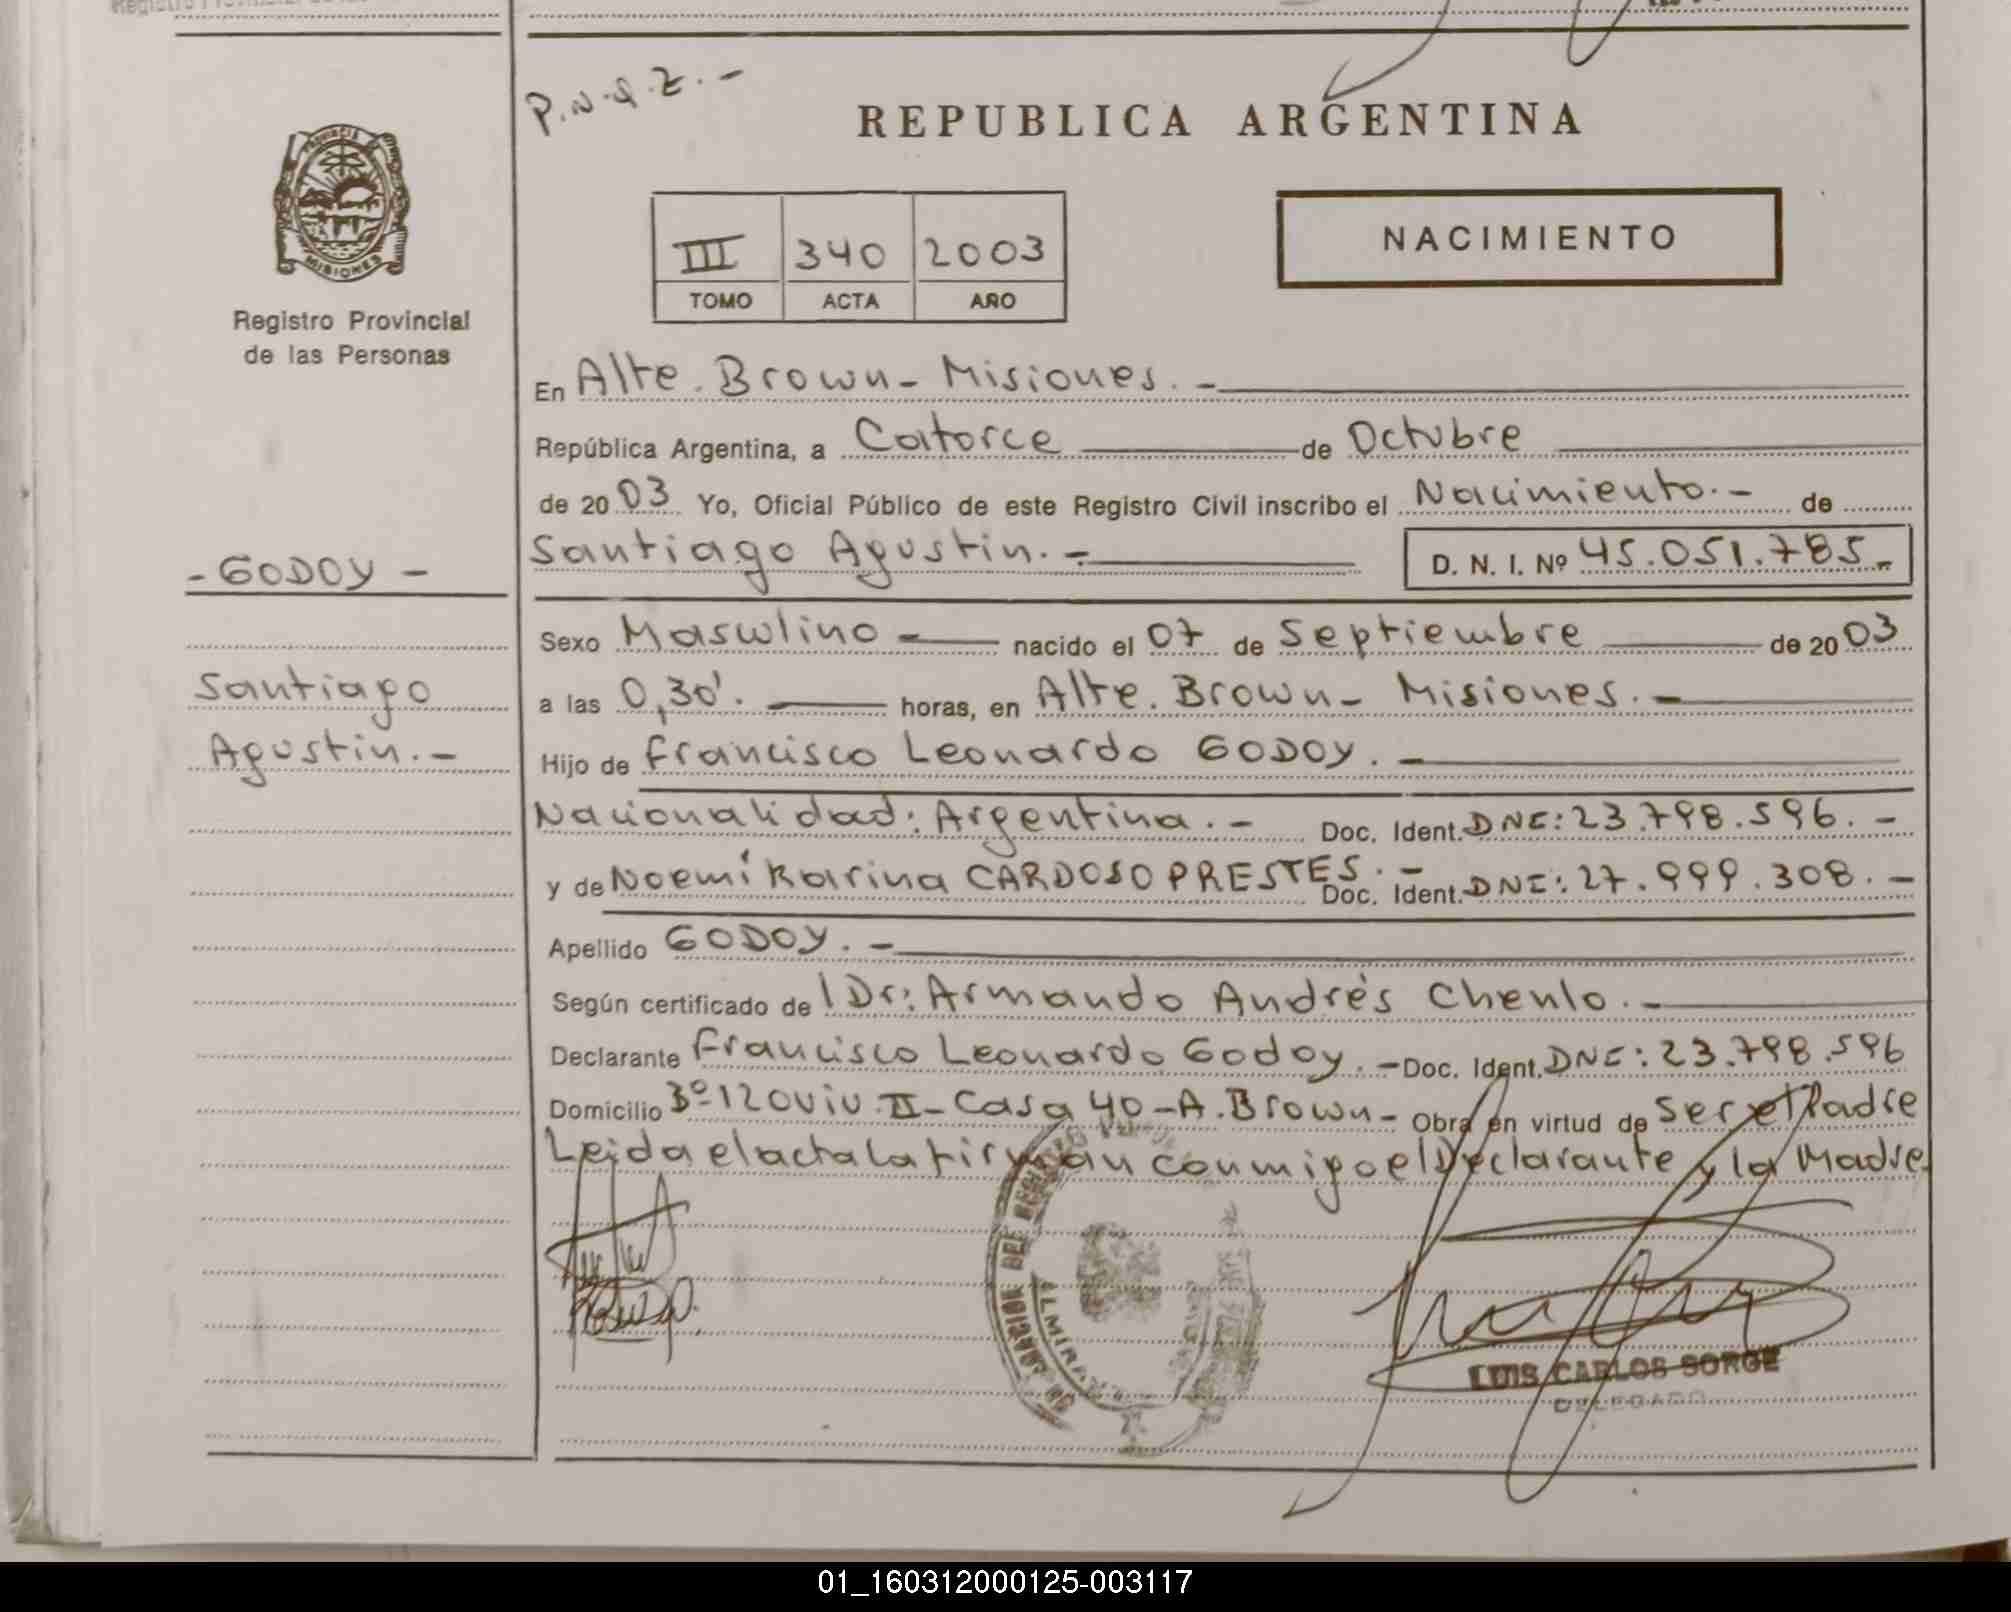 P.N.A.Z.-
REPUBLICA ARGENTINA
PROVINCIA
MISIONES
Registro Provincial
de las Personas
III 340 2003
TOMO ACTA AÑO
NACIMIENTO
En Alte. Brown - Misiones. -
República Argentina, a Catorce de Octubre
de 20 03 Yo, Oficial Público de este Registro Civil inscribo el Nacimiento.- de
Santiago Agustin. - D. N. I. Nº 45.051.785.-
- GODOY -
Santiago
Agustin. -
Sexo Masculino - nacido el 07 de Septiembre de 20 03
a las 0,30'. horas, en Alte. Brown - Misiones. -
Hijo de Francisco Leonardo GODOY. -
Nacionalidad: Argentina. - Doc. Ident. DNE: 23.798.596. -
y de Noemí Karina CARDOSO PRESTES. - Doc. Ident. DNE: 27.999.308. -
Apellido GODOY. -
Según certificado de l Dr: Armando Andrés Chenlo. -
Declarante Francisco Leonardo Godoy. - Doc. Ident. DNE: 23.798.596
Domicilio Bº 120 viv. II - Casa 40 - A. Brown - Obra en virtud de ser el Padre
Leida el acta la firman conmigo el Declarante y la Madre.
LUIS CARLOS SORGE
DELEGADO
01_160312000125-003117